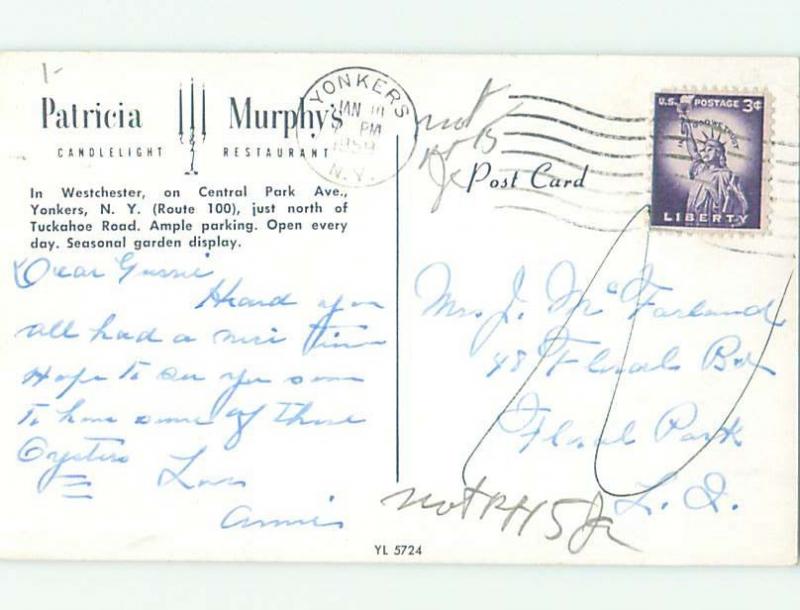 1-
Patricia Murphy's
CANDLELIGHT RESTAURANT
In Westchester, on Central Park Ave.,
Yonkers, N. Y. (Route 100), just north of
Tuckahoe Road. Ample parking. Open every
day. Seasonal garden display.
YONKERS
JAN
PM
1959
N.Y.
U.S. POSTAGE 3¢
IN GOD WE TRUST
LIBERTY
not
Post Card
Dear Gussie
Heard you
all had a nice time
Hope to see you soon
to have some of those
Oysters Love
Annie
Mrs J. McFarland
48 Floral Bd
Floral Park
L. I.
not
YL 5724